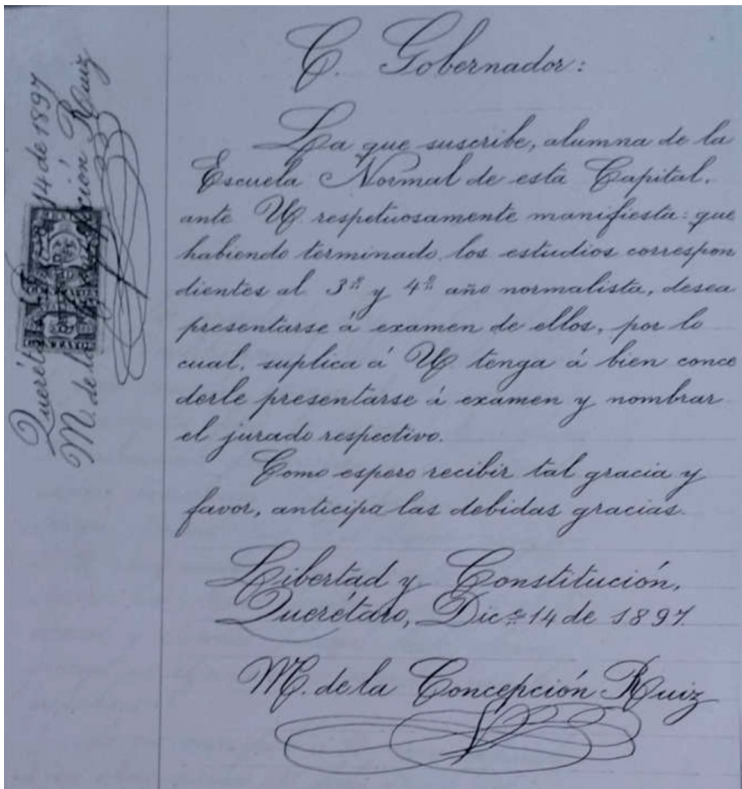 C. Gobernador:
La que suscribe, alumna de la
Escuela Normal de esta Capital,
ante U. respetuosamente manifiesta: que
habiendo terminado, los estudios correspon
dientes al 3º y 4º año normalista, desea
presentarse á examen de ellos, por lo
cual, suplica á U. tenga á bien conce
derle presentarse á examen y nombrar
el jurado respectivo.
Como espero recibir tal gracia y
favor, anticipa las debidas gracias.
Libertad y Constitución,
Querétaro, Dice 14 de 1897.
M. de la Concepción Ruiz
Querétaro 14 de 1897
M. de la Concepción Ruiz